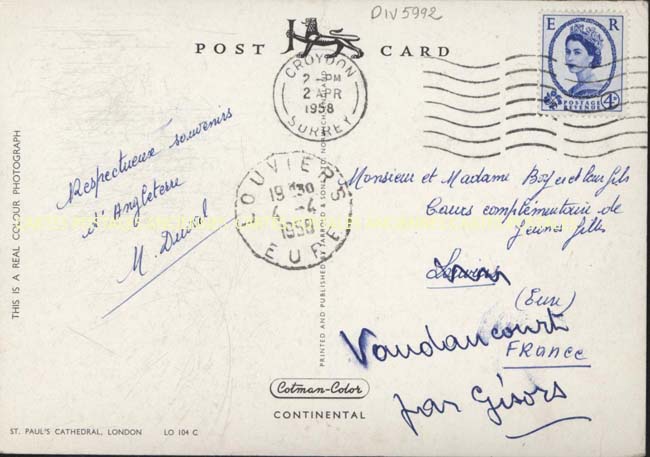 DIV 5992
POST CARD
E R
POSTAGE
REVENUE
4D
CROYDON
2 APR
1958
SURREY
LOUVIERS
19 30
4-4
1958
EURE
Respectueux souvenirs
d'Angleterre
M. Duval
Monsieur et Madame Boyer et leur fils
Cours complémentaire de
Jeunes filles
Louviers
(Eure)
FRANCE
Vaudancourt
par Gisors
THIS IS A REAL COLOUR PHOTOGRAPH
PRINTED AND PUBLISHED BY JARROLD & SONS LTD NORWICH
Cotman-Color
CONTINENTAL
ST. PAUL'S CATHEDRAL, LONDON LO 104 C